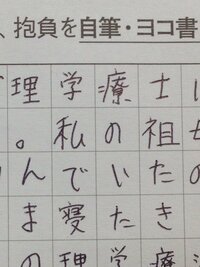 、抱負を自筆・ヨコ書
理学療士に
。私の祖
んでいたの
ま寝たき
の理学療